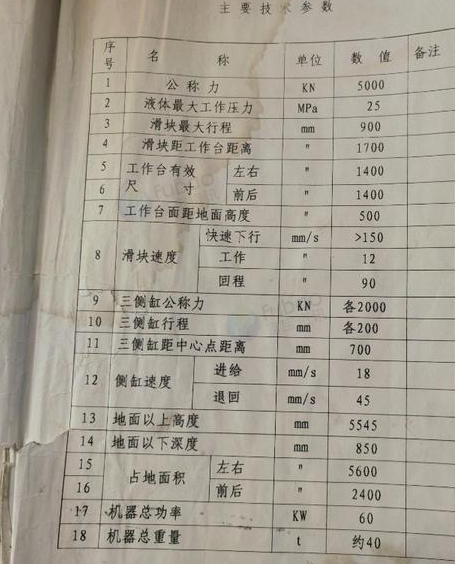 主要技术参数
序号 名称 单位 数值 备注
1 公称力 KN 5000
2 液体最大工作压力 MPa 25
3 滑块最大行程 mm 900
4 滑块距工作台距离 〃 1700
5 工作台有效 左右 〃 1400
6 尺寸 前后 〃 1400
7 工作台面距地面高度 〃 500
快速下行 mm/s >150
8 滑块速度 工作 〃 12
回程 〃 90
9 三侧缸公称力 KN 各2000
10 三侧缸行程 mm 各200
11 三侧缸距中心点距离 mm 700
12 侧缸速度 进给 mm/s 18
退回 mm/s 45
13 地面以上高度 mm 5545
14 地面以下深度 mm 850
15 占地面积 左右 〃 5600
16 前后 〃 2400
17 机器总功率 KW 60
18 机器总重量 t 约40